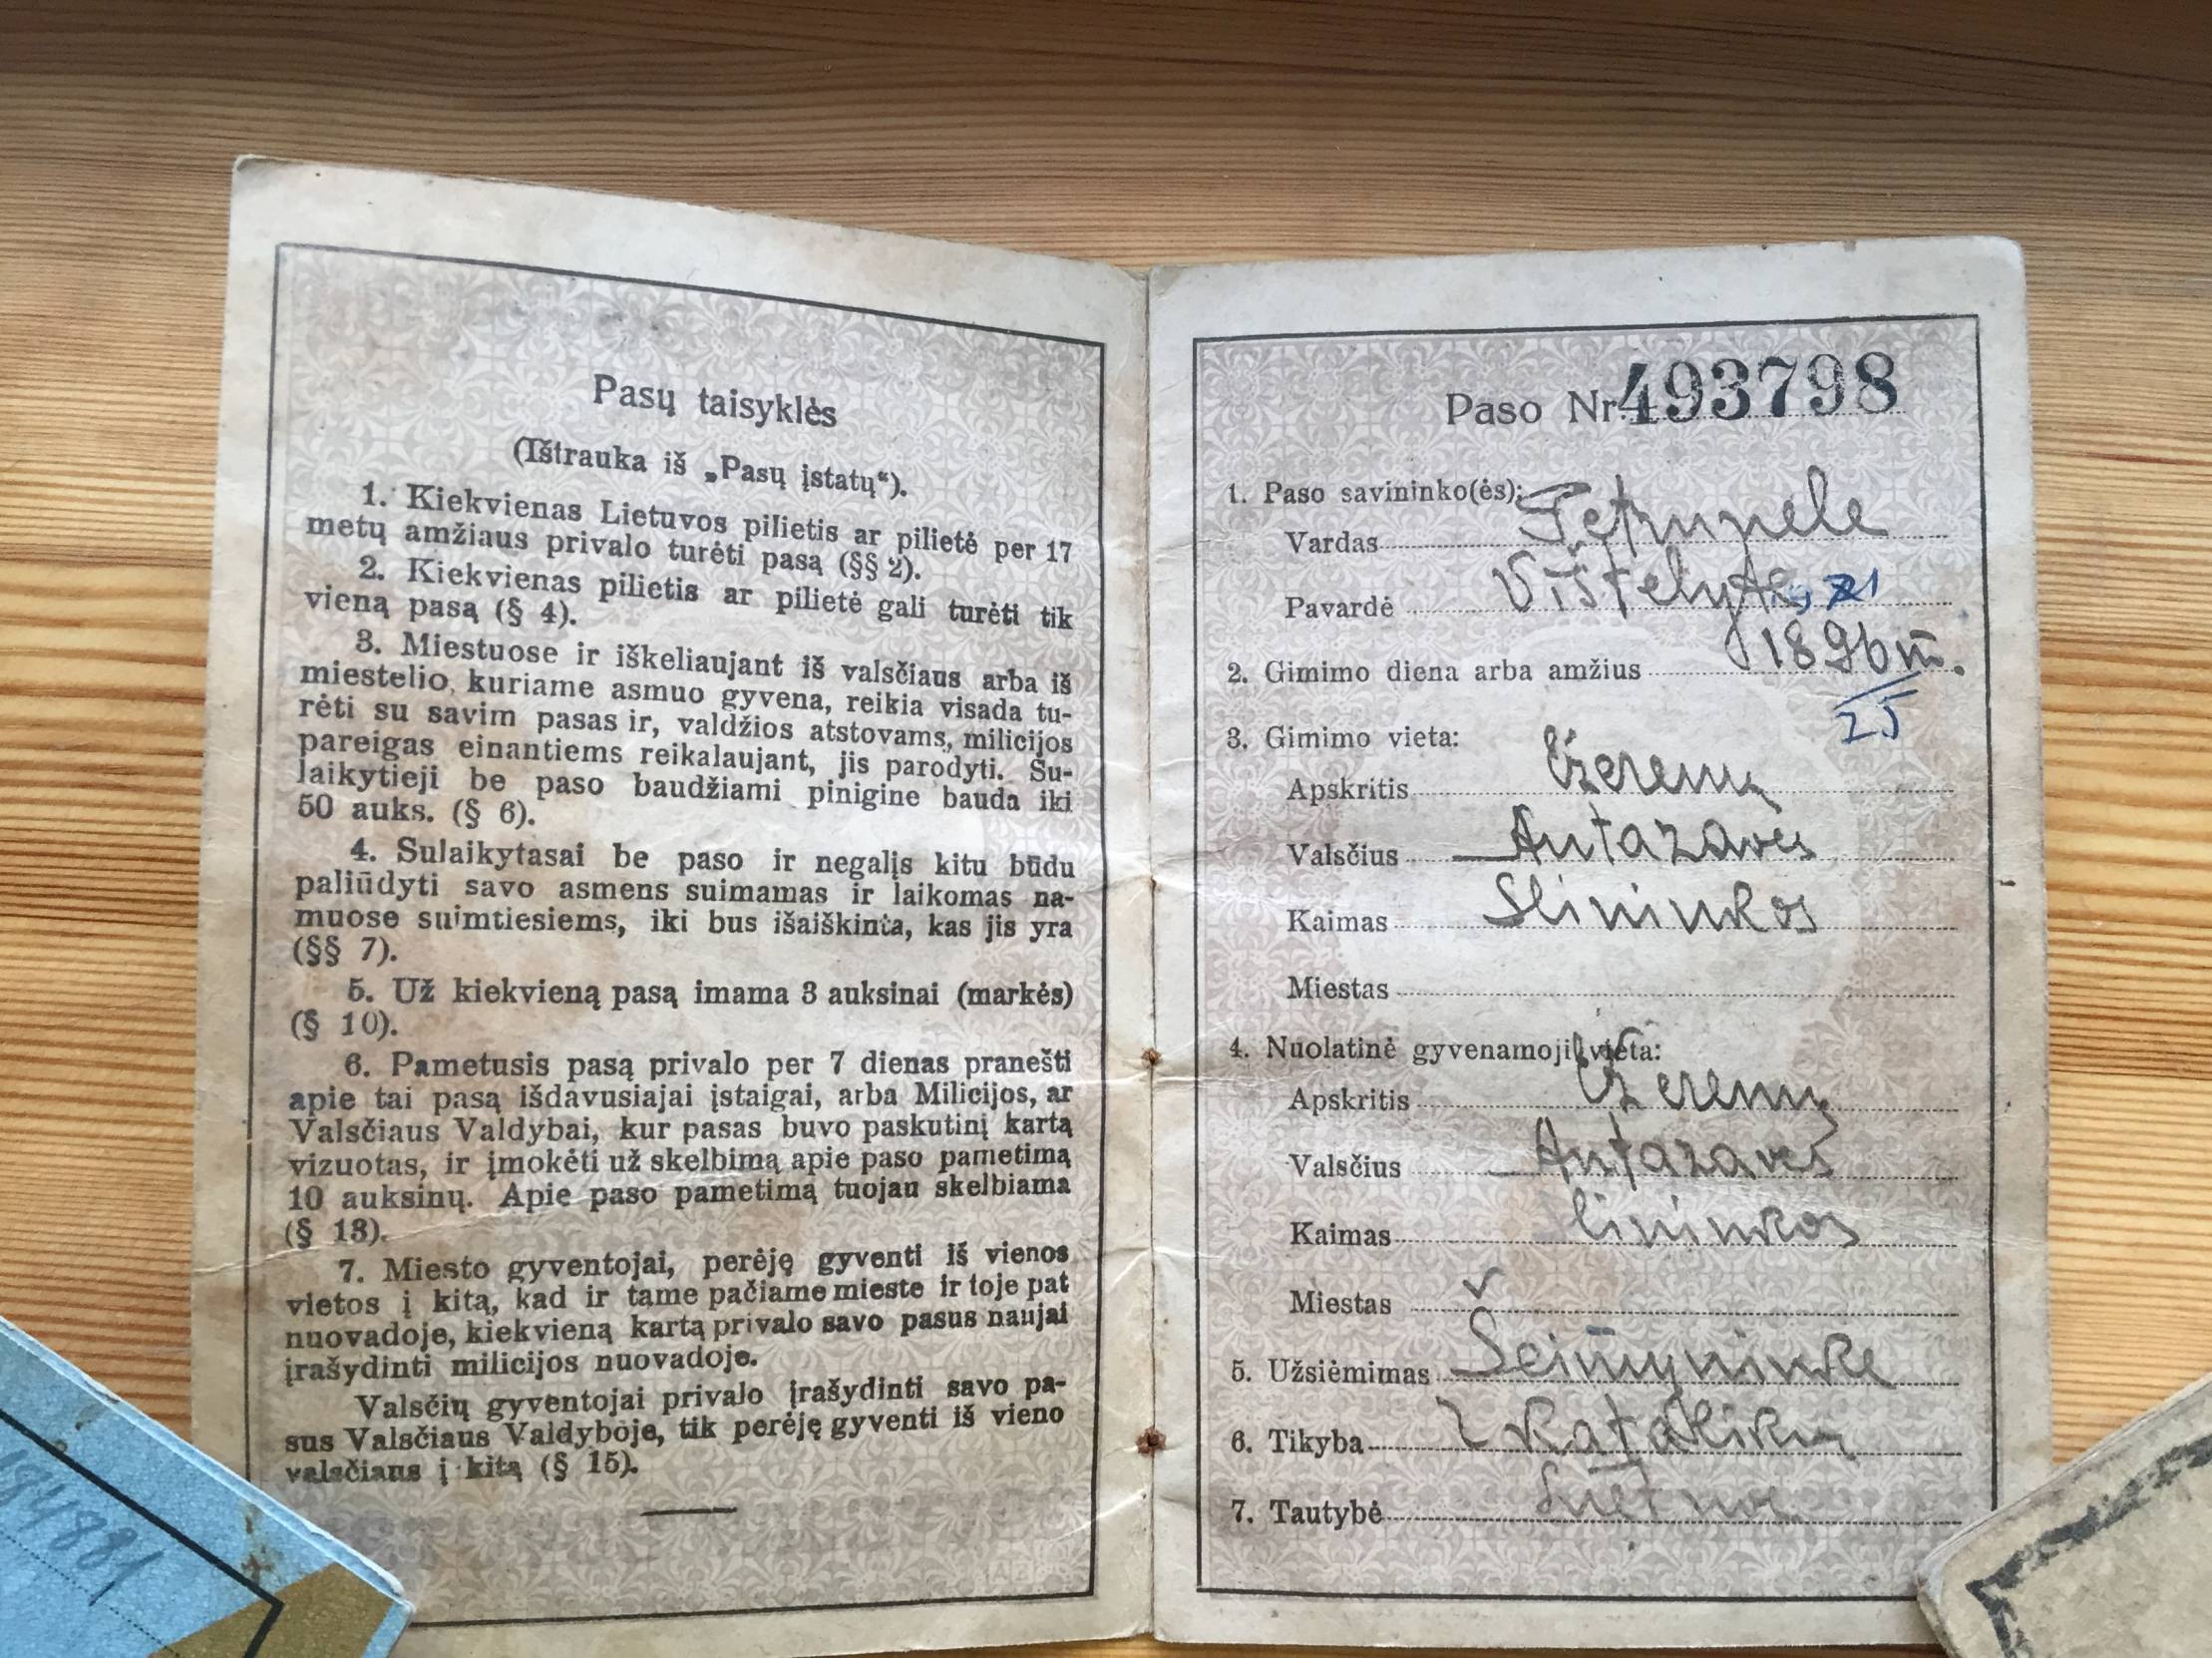 Pasų taisyklės
(Ištrauka iš „Pasų įstatų“).
1. Kiekvienas Lietuvos pilietis ar pilietė per 17
metų amžiaus privalo turėti pasą (§§ 2).
2. Kiekvienas pilietis ar pilietė gali turėti tik
vieną pasą (§ 4).
3. Miestuose ir iškeliaujant iš valsčiaus arba iš
miestelio, kuriame asmuo gyvena, reikia visada tu-
rėti su savim pasas ir, valdžios atstovams, milicijos
pareigas einantiems reikalaujant, jis parodyti. Su-
laikytieji be paso baudžiami pinigine bauda iki
50 auks. (§ 6).
4. Sulaikytasai be paso ir negalįs kitu būdu
paliūdyti savo asmens suimamas ir laikomas na-
muose suimtiesiems, iki bus išaiškinta, kas jis yra
(§§ 7).
5. Už kiekvieną pasą imama 3 auksinai (markės)
(§ 10).
6. Pametusis pasą privalo per 7 dienas pranešti
apie tai pasą išdavusiajai įstaigai, arba Milicijos, ar
Valsčiaus Valdybai, kur pasas buvo paskutinį kartą
vizuotas, ir įmokėti už skelbimą apie paso pametimą
10 auksinų. Apie paso pametimą tuojau skelbiama
(§ 13).
7. Miesto gyventojai, perėję gyventi iš vienos
vietos į kitą, kad ir tame pačiame mieste ir toje pat
nuovadoje, kiekvieną kartą privalo savo pasus naujai
įrašydinti milicijos nuovadoje.
Valsčių gyventojai privalo įrašydinti savo pa-
sus Valsčiaus Valdyboje, tik perėję gyventi iš vieno
valsčiaus į kitą (§ 15).
Paso Nr. 493798
1. Paso savininko(ės):
Vardas Petrunele
Pavardė Vištelytė
2. Gimimo diena arba amžius 1896 m.
25
3. Gimimo vieta:
Apskritis Ežerenų
Valsčius Antazavės
Kaimas Slininkos
Miestas
4. Nuolatinė gyvenamoji vieta:
Apskritis Ežerenų
Valsčius Antazavės
Kaimas Slininkos
Miestas
5. Užsiėmimas Šeimyninkė
6. Tikyba katalikų
7. Tautybė Lietuvos
194881